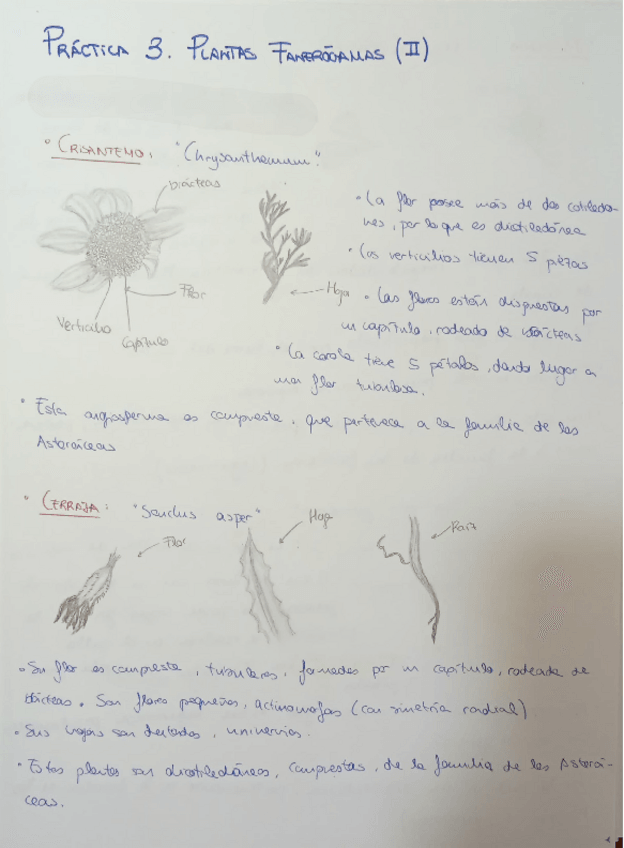 PRÁCTICA 3. PLANTAS FANERÓGAMAS (II)
• CRISANTEMO: "Chrysanthemum".
brácteas
Flor
Verticilo
Capítulo
Hoja
• La flor posee más de dos cotiledo-
nes, por lo que es dicotiledónea
• Los verticilios tienen 5 piezas
• Las flores están dispuestas por
un capítulo, rodeado de brácteas
• La corola tiene 5 pétalos, dando lugar a
una flor tubulosa.
• Esta angiosperma es compuesta, que pertenece a la familia de las
Asteráceas
• CERRAJA: "Sonchus asper"
Flor
Hoja
Raíz
• Su flor es compuesta, tubulares, formadas por un capítulo, rodeada de
brácteas. Son flores pequeñas, actinomorfas (con simetría radial)
• Sus hojas son dentadas, uninervias.
• Estas plantas son dicotiledóneas, compuestas, de la familia de las Asterá-
ceas.